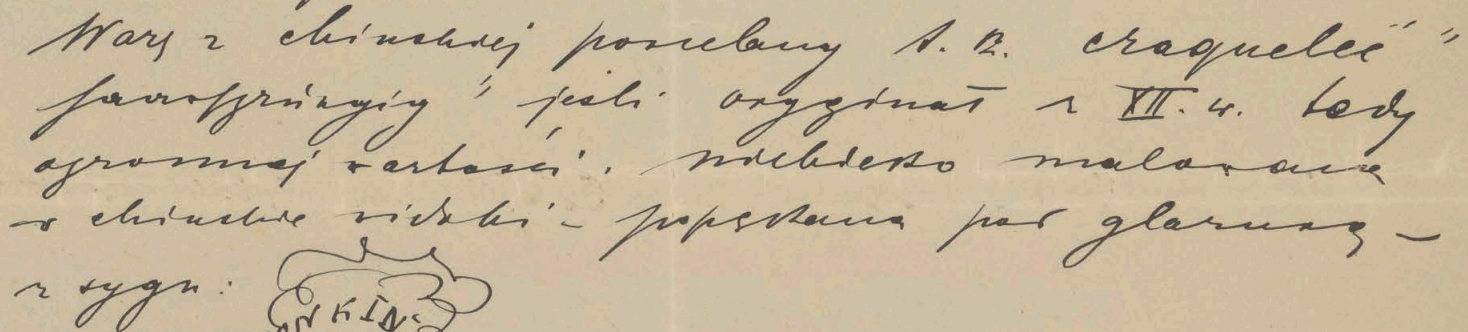 Wazę z chinskiej porcelany t. z. craqueleé "
haarsprüngig " jesli oryginał z XII. w. tedy
ogromnej wartości. niebiesko malowana
w chinskie widoki – popękana pod glazurą –
z sygn:
NKIN